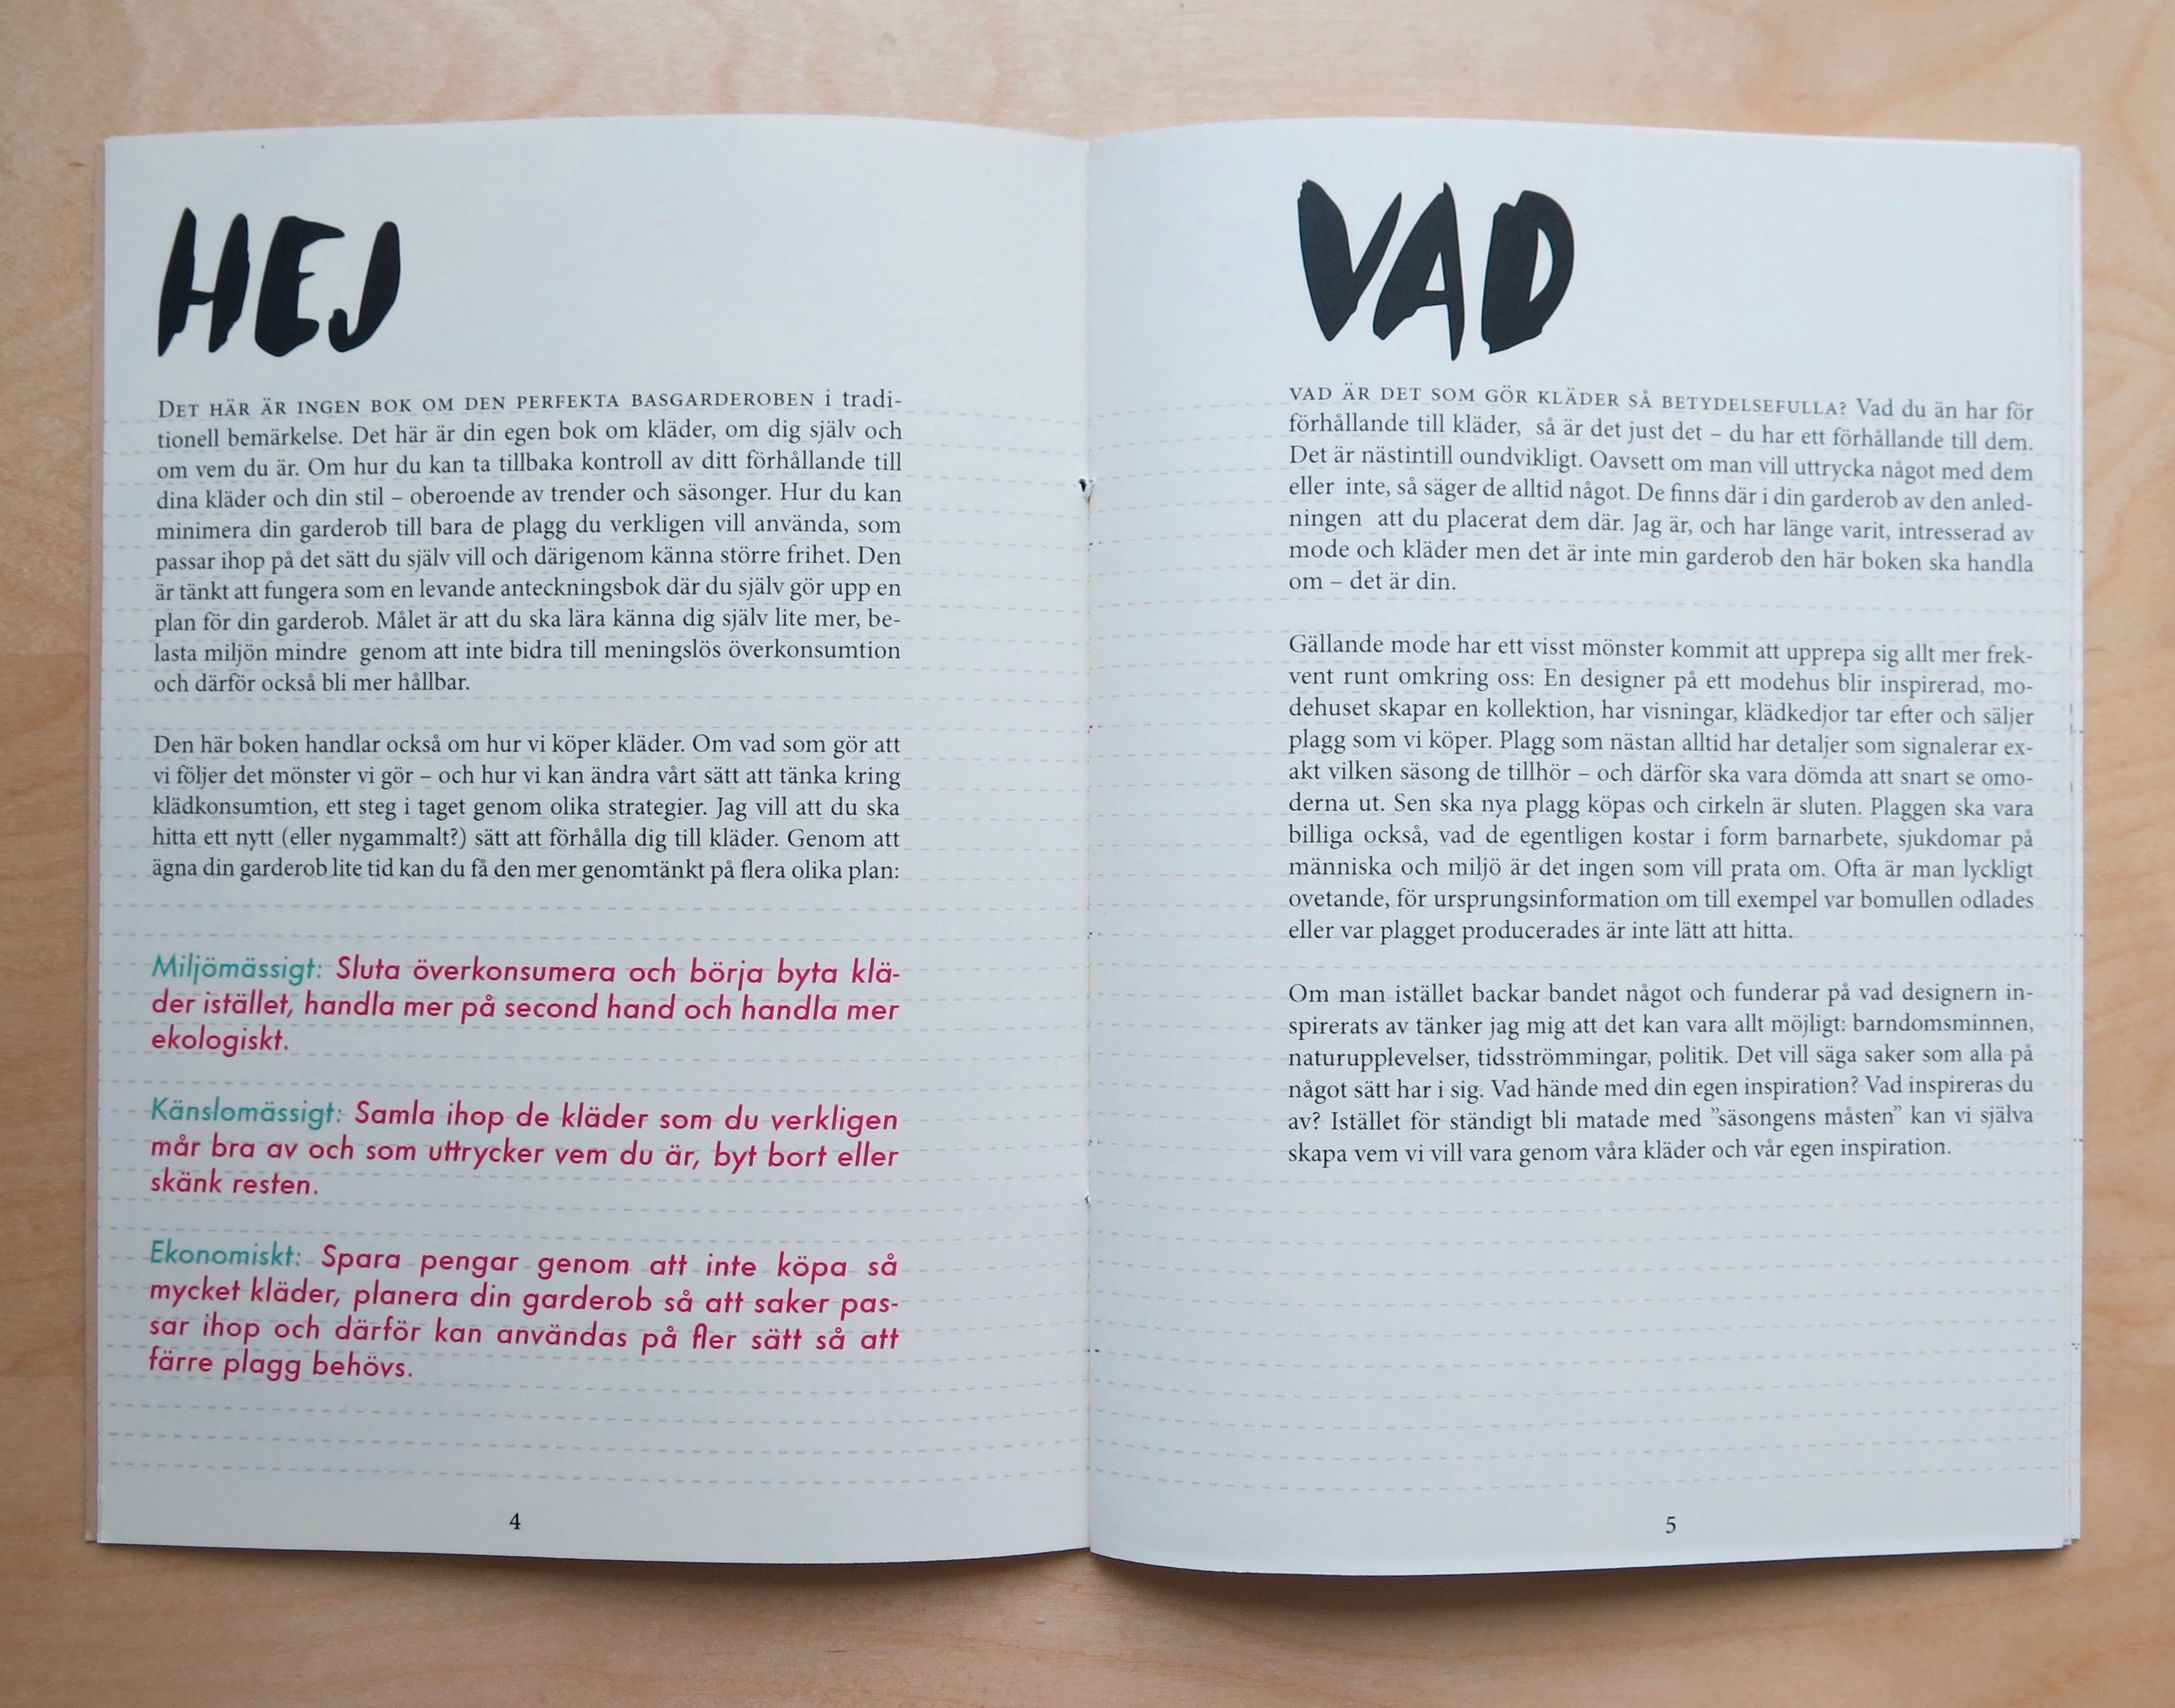 HEJ
DET HÄR ÄR INGEN BOK OM DEN PERFEKTA BASGARDEROBEN i tradi-
tionell bemärkelse. Det här är din egen bok om kläder, om dig själv och
om vem du är. Om hur du kan ta tillbaka kontroll av ditt förhållande till
dina kläder och din stil – oberoende av trender och säsonger. Hur du kan
minimera din garderob till bara de plagg du verkligen vill använda, som
passar ihop på det sätt du själv vill och därigenom känna större frihet. Den
är tänkt att fungera som en levande anteckningsbok där du själv gör upp en
plan för din garderob. Målet är att du ska lära känna dig själv lite mer, be-
lasta miljön mindre genom att inte bidra till meningslös överkonsumtion
och därför också bli mer hållbar.
Den här boken handlar också om hur vi köper kläder. Om vad som gör att
vi följer det mönster vi gör – och hur vi kan ändra vårt sätt att tänka kring
klädkonsumtion, ett steg i taget genom olika strategier. Jag vill att du ska
hitta ett nytt (eller nygammalt?) sätt att förhålla dig till kläder. Genom att
ägna din garderob lite tid kan du få den mer genomtänkt på flera olika plan:
Miljömässigt: Sluta överkonsumera och börja byta klä-
der istället, handla mer på second hand och handla mer
ekologiskt.
Känslomässigt: Samla ihop de kläder som du verkligen
mår bra av och som uttrycker vem du är, byt bort eller
skänk resten.
Ekonomiskt: Spara pengar genom att inte köpa så
mycket kläder, planera din garderob så att saker pas-
sar ihop och därför kan användas på fler sätt så att
färre plagg behövs.
4
VAD
VAD ÄR DET SOM GÖR KLÄDER SÅ BETYDELSEFULLA? Vad du än har för
förhållande till kläder, så är det just det – du har ett förhållande till dem.
Det är nästintill oundvikligt. Oavsett om man vill uttrycka något med dem
eller inte, så säger de alltid något. De finns där i din garderob av den anled-
ningen att du placerat dem där. Jag är, och har länge varit, intresserad av
mode och kläder men det är inte min garderob den här boken ska handla
om – det är din.
Gällande mode har ett visst mönster kommit att upprepa sig allt mer frek-
vent runt omkring oss: En designer på ett modehus blir inspirerad, mo-
dehuset skapar en kollektion, har visningar, klädkedjor tar efter och säljer
plagg som vi köper. Plagg som nästan alltid har detaljer som signalerar ex-
akt vilken säsong de tillhör – och därför ska vara dömda att snart se omo-
derna ut. Sen ska nya plagg köpas och cirkeln är sluten. Plaggen ska vara
billiga också, vad de egentligen kostar i form barnarbete, sjukdomar på
människa och miljö är det ingen som vill prata om. Ofta är man lyckligt
ovetande, för ursprungsinformation om till exempel var bomullen odlades
eller var plagget producerades är inte lätt att hitta.
Om man istället backar bandet något och funderar på vad designern in-
spirerats av tänker jag mig att det kan vara allt möjligt: barndomsminnen,
naturupplevelser, tidsströmmingar, politik. Det vill säga saker som alla på
något sätt har i sig. Vad hände med din egen inspiration? Vad inspireras du
av? Istället för ständigt bli matade med ”säsongens måsten” kan vi själva
skapa vem vi vill vara genom våra kläder och vår egen inspiration.
5